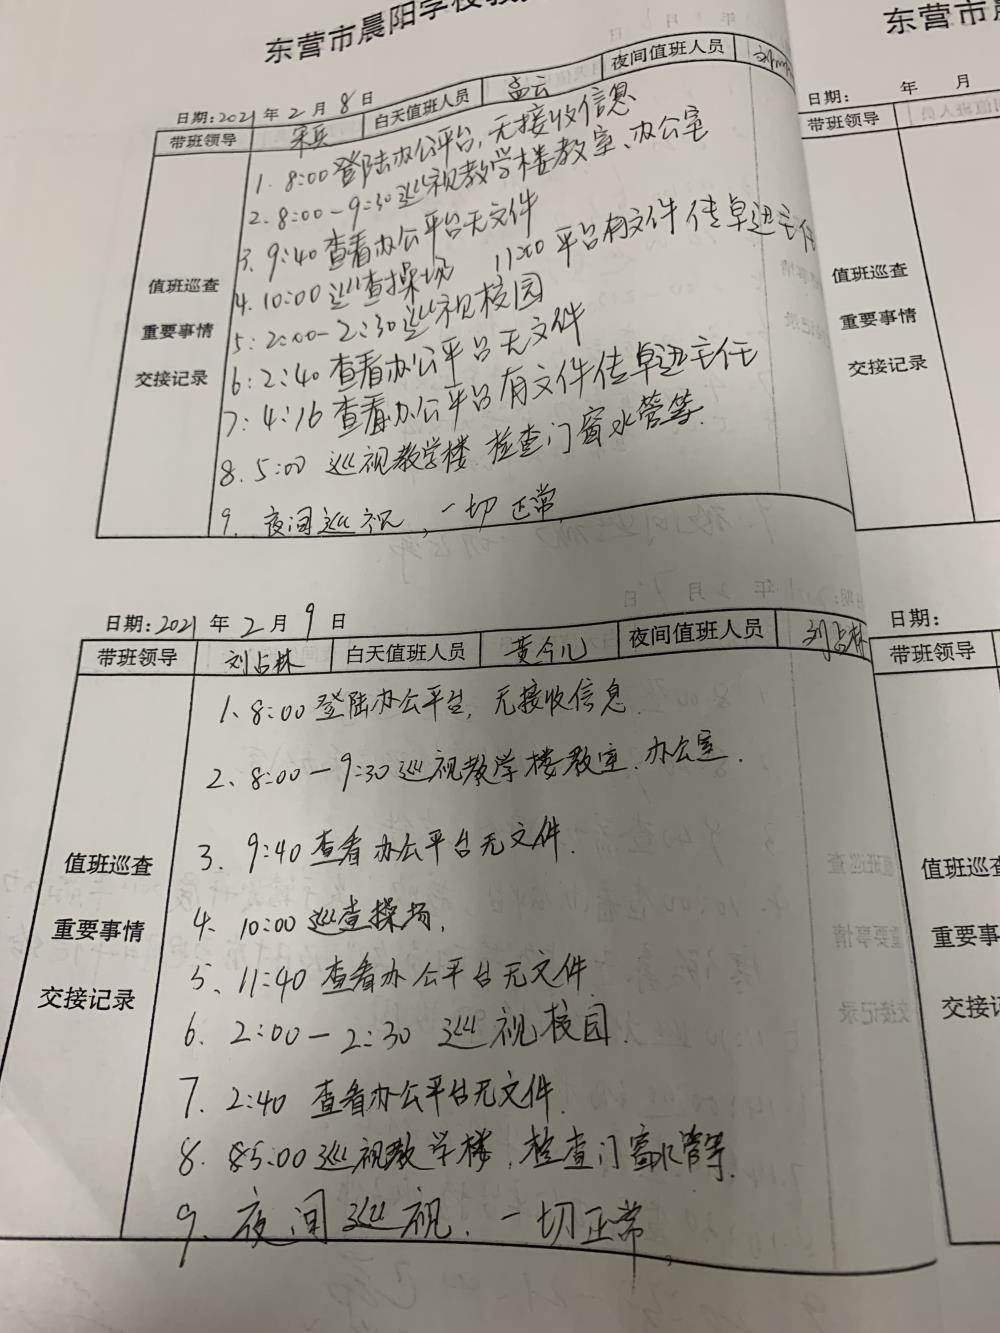 东营市晨阳学校教
日期:2021年2月8日
带班领导 宋兵 白天值班人员 孟云 夜间值班人员
值班巡查
重要事情
交接记录
1. 8:00登陆办公平台,无接收信息
2. 8:00-9:30巡视教学楼教室、办公室
3. 9:40查看办公平台无文件
4. 10:00巡查操场 11:00平台有文件传卓迅主任
5: 2:00-2:30巡视校园
6: 2:40查看办公平台无文件
7: 4:16查看办公平台有文件传卓迅主任
8. 5:00巡视教学楼 检查门窗水管等.
9. 夜间巡视,一切正常
日期:2021年2月9日
带班领导 刘占林 白天值班人员 黄今儿 夜间值班人员 刘占林
值班巡查
重要事情
交接记录
1、8:00登陆办公平台,无接收信息.
2、8:00-9:30巡视教学楼教室、办公室.
3. 9:40查看办公平台无文件.
4. 10:00巡查操场,
5、11:40查看办公平台无文件.
6. 2:00-2:30巡视校园.
7. 2:40查看办公平台无文件.
8. 5:00巡视教学楼,检查门窗水管等.
9. 夜间巡视,一切正常,
东营市
日期: 年 月
带班领导
值班巡查
重要事情
交接记录
日期:
带班领导
值班巡查
重要事
交接